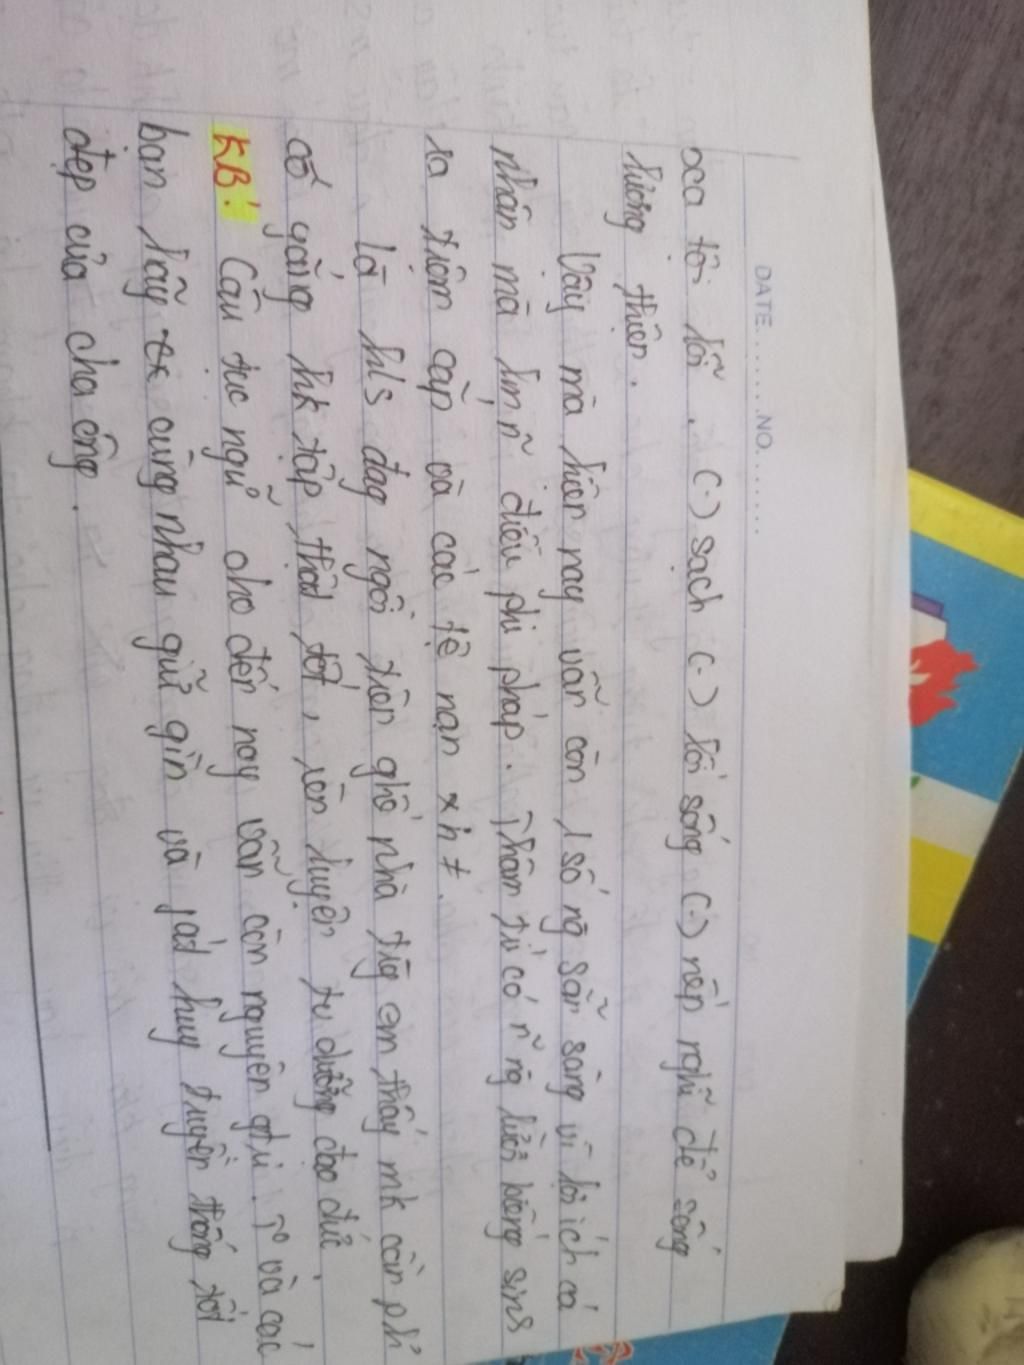 DATE.......NO.......
xa tội lỗi, (-) sạch (-) lối sống (-) nếp nghĩ để sống
lương thiện.
Vậy mà hiện nay vẫn còn 1 số ng sẵn sàng vì lợi ích cá
nhân mà làm ñ điều phi pháp. Thậm trí có ñ ng lười biếng sinh
ra trộm cắp và các tệ nạn xh ≠.
Là hs đag ngồi trên ghế nhà trg em thấy mk cần phải
cố gắng hk tập thật tốt, rèn luyện tu dưỡng đạo đức.
KB: Câu tục ngữ cho đến nay vẫn còn nguyên giá trị và các
bạn hãy cùng nhau giữ gìn và phát huy truyền thống tốt
đẹp của cha ông.